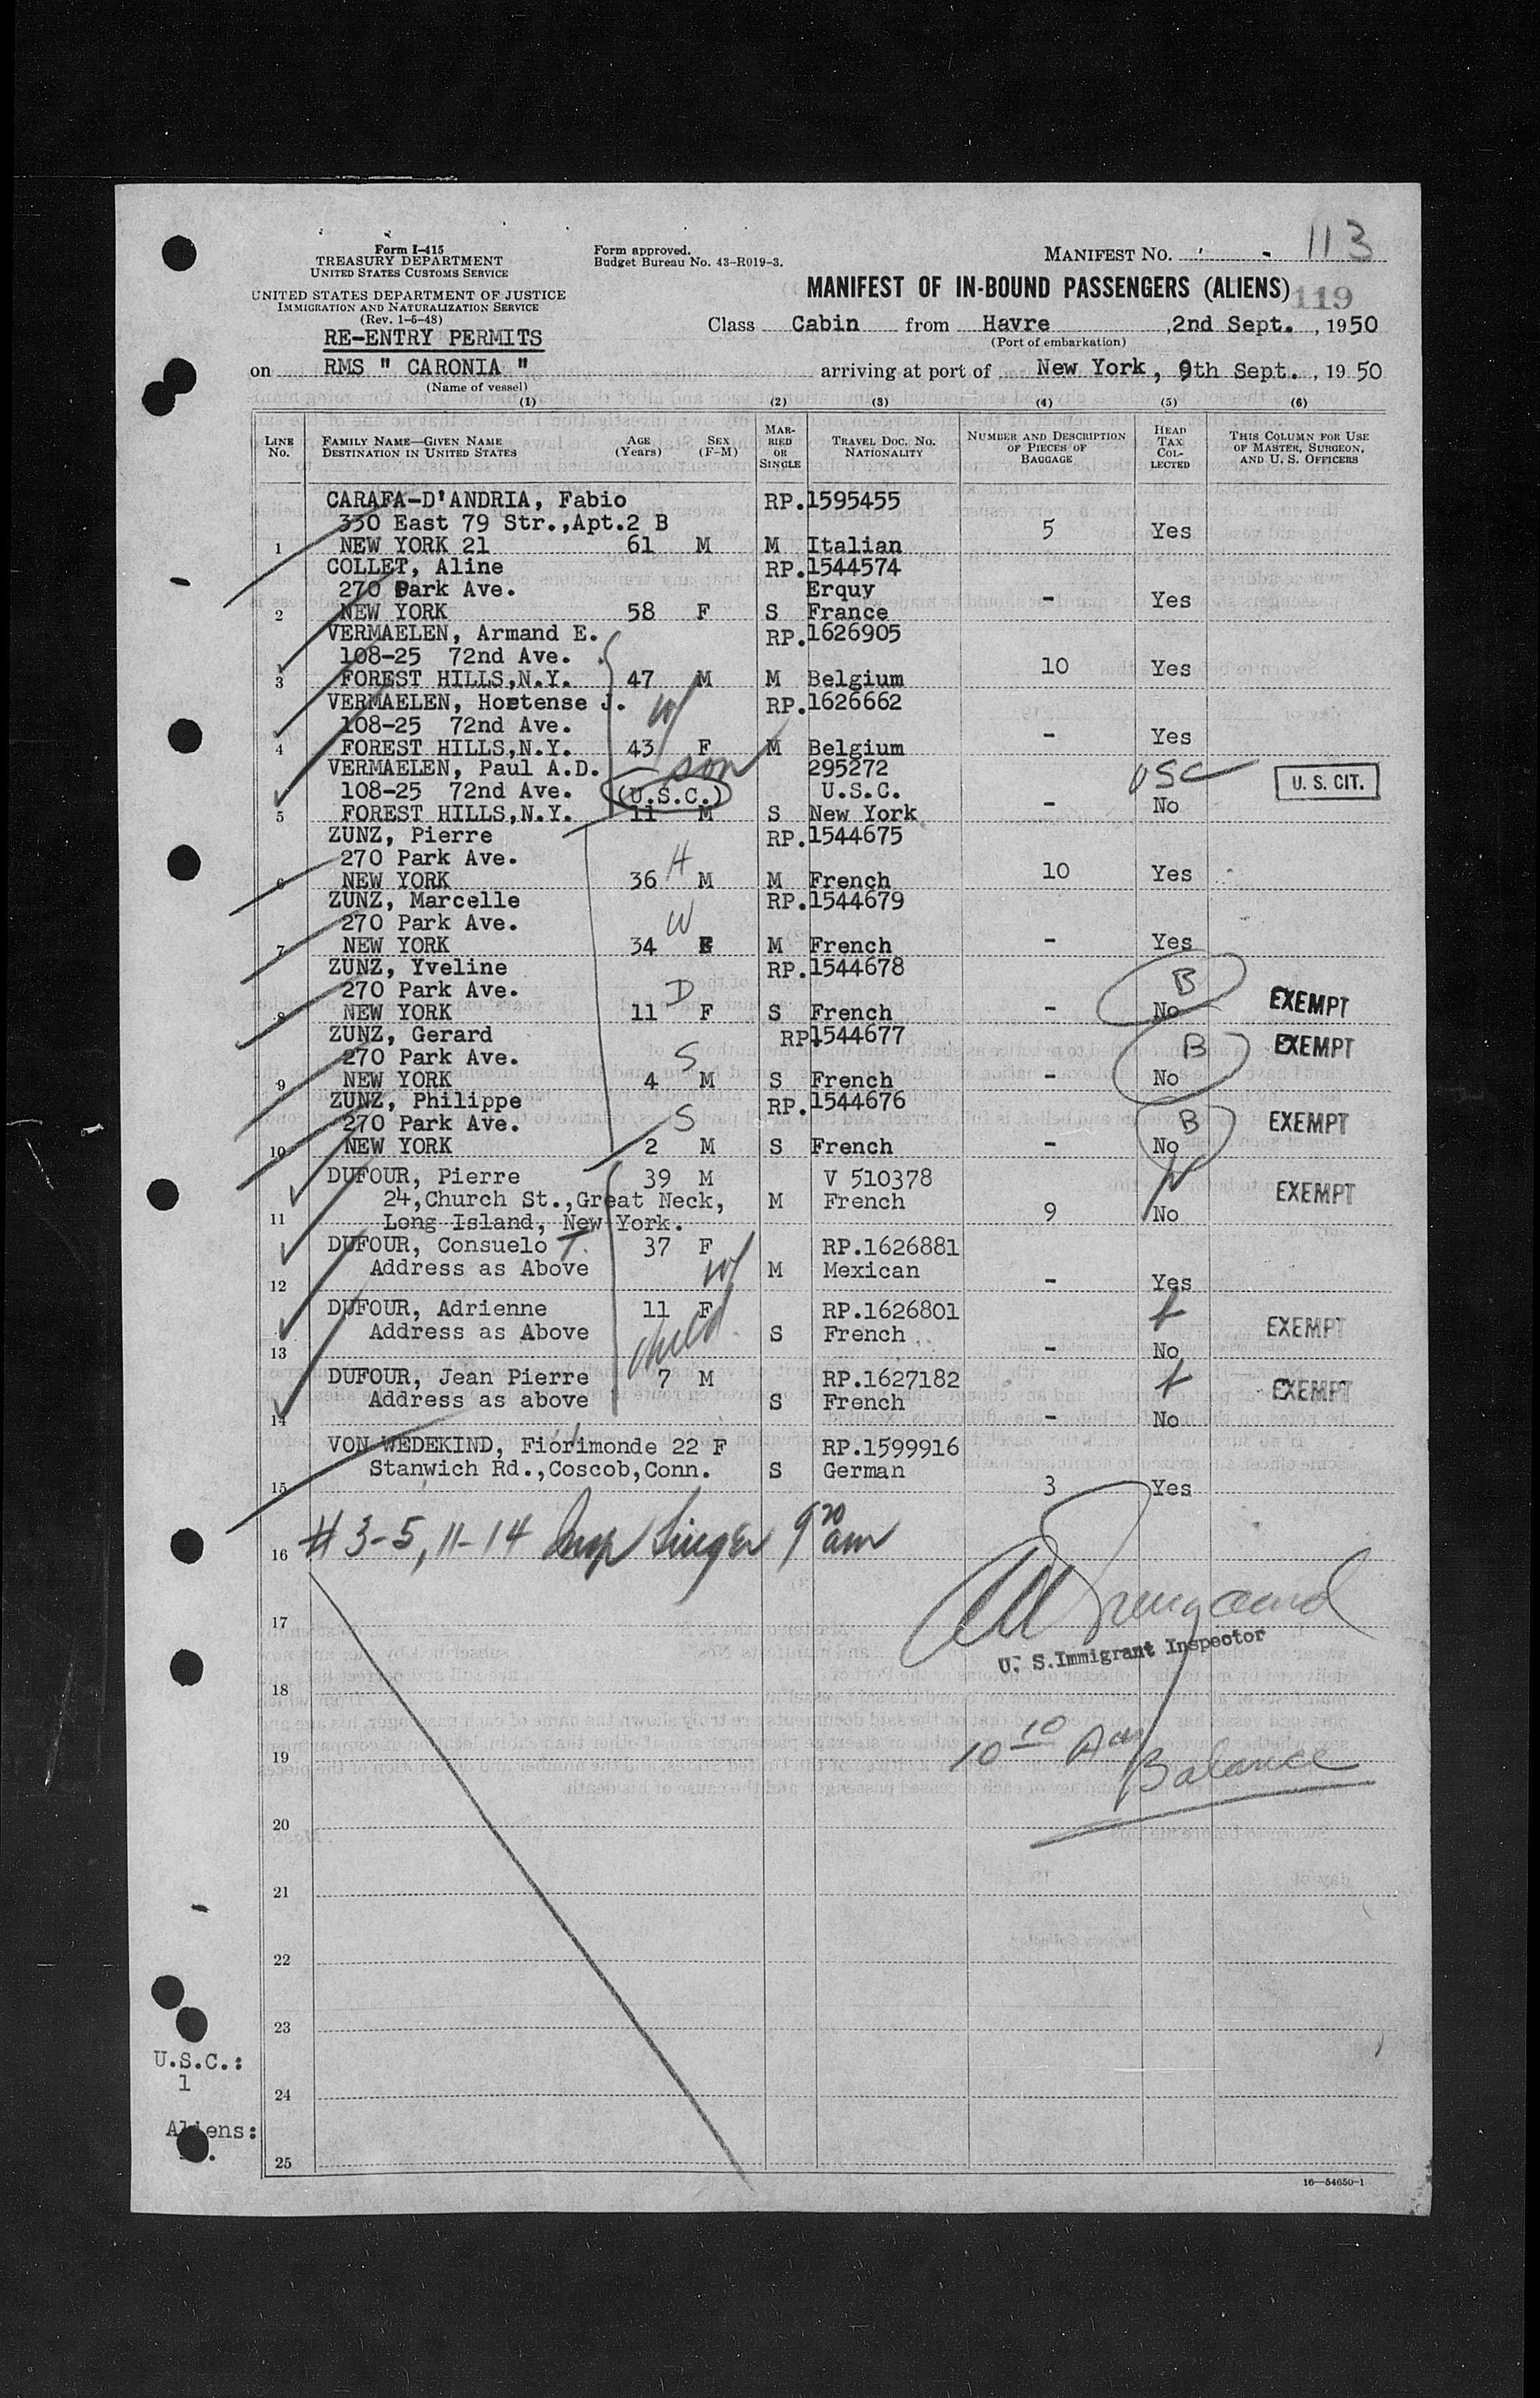 113
Form I-415
TREASURY DEPARTMENT
UNITED STATES CUSTOMS SERVICE
Form approved.
Budget Bureau No. 43-R019-3.
MANIFEST NO.
UNITED STATES DEPARTMENT OF JUSTICE
IMMIGRATION AND NATURALIZATION SERVICE
(Rev. 1-6-48)
MANIFEST OF IN-BOUND PASSENGERS (ALIENS)
119
RE-ENTRY PERMITS
Class Cabin from Havre ,2nd Sept. , 1950
(Port of embarkation)
on RMS " CARONIA " arriving at port of New York, 9th Sept. , 1950
(Name of vessel)
(1) (2) (3) (4) (5) (6)
LINE No. FAMILY NAME—GIVEN NAME DESTINATION IN UNITED STATES AGE (Years) SEX (F-M) MARRIED OR SINGLE TRAVEL DOC. NO. NATIONALITY NUMBER AND DESCRIPTION OF PIECES OF BAGGAGE HEAD TAX COLLECTED THIS COLUMN FOR USE OF MASTER, SURGEON, AND U. S. OFFICERS
CARAFA-D'ANDRIA, Fabio RP.1595455
330 East 79 Str.,Apt.2 B 5 Yes
1 NEW YORK 21 61 M M Italian
COLLET, Aline RP.1544574
270 Park Ave. Erquy - Yes
2 NEW YORK 58 F S France
VERMAELEN, Armand E. RP.1626905
108-25 72nd Ave. 10 Yes
3 FOREST HILLS,N.Y. 47 M M Belgium
VERMAELEN, Hortense J. RP.1626662
108-25 72nd Ave. W - Yes
4 FOREST HILLS,N.Y. 43 F M Belgium
VERMAELEN, Paul A.D. son 295272 USC
108-25 72nd Ave. (U.S.C.) U.S.C. - No U. S. CIT.
5 FOREST HILLS,N.Y. 11 M S New York
ZUNZ, Pierre RP.1544675
270 Park Ave. H 10 Yes
6 NEW YORK 36 M M French
ZUNZ, Marcelle RP.1544679
270 Park Ave. W
7 NEW YORK 34 F M French - Yes
ZUNZ, Yveline RP.1544678 B
270 Park Ave. D EXEMPT
8 NEW YORK 11 F S French - No
ZUNZ, Gerard RP.1544677
270 Park Ave. S B EXEMPT
9 NEW YORK 4 M S French - No
ZUNZ, Philippe RP.1544676
270 Park Ave. S B EXEMPT
10 NEW YORK 2 M S French - No
DUFOUR, Pierre 39 M V 510378
24,Church St.,Great Neck, M French EXEMPT
11 Long Island, New York. 9 No
DUFOUR, Consuelo T. 37 F RP.1626881
Address as Above W M Mexican
12 - Yes
DUFOUR, Adrienne 11 F RP.1626801
Address as Above child S French EXEMPT
13 - No
DUFOUR, Jean Pierre 7 M RP.1627182
Address as above S French EXEMPT
14 - No
VON WEDEKIND, Fiorimonde 22 F RP.1599916
Stanwich Rd.,Coscob,Conn. S German
15 3 Yes
16 # 3-5, 11-14 Insp Singer 9 20 am
17
U. S. Immigrant Inspector
18
19 10 10 Am
Balance
20
21
22
23
U.S.C.:
1
24
Aliens:
25
16—54650-1